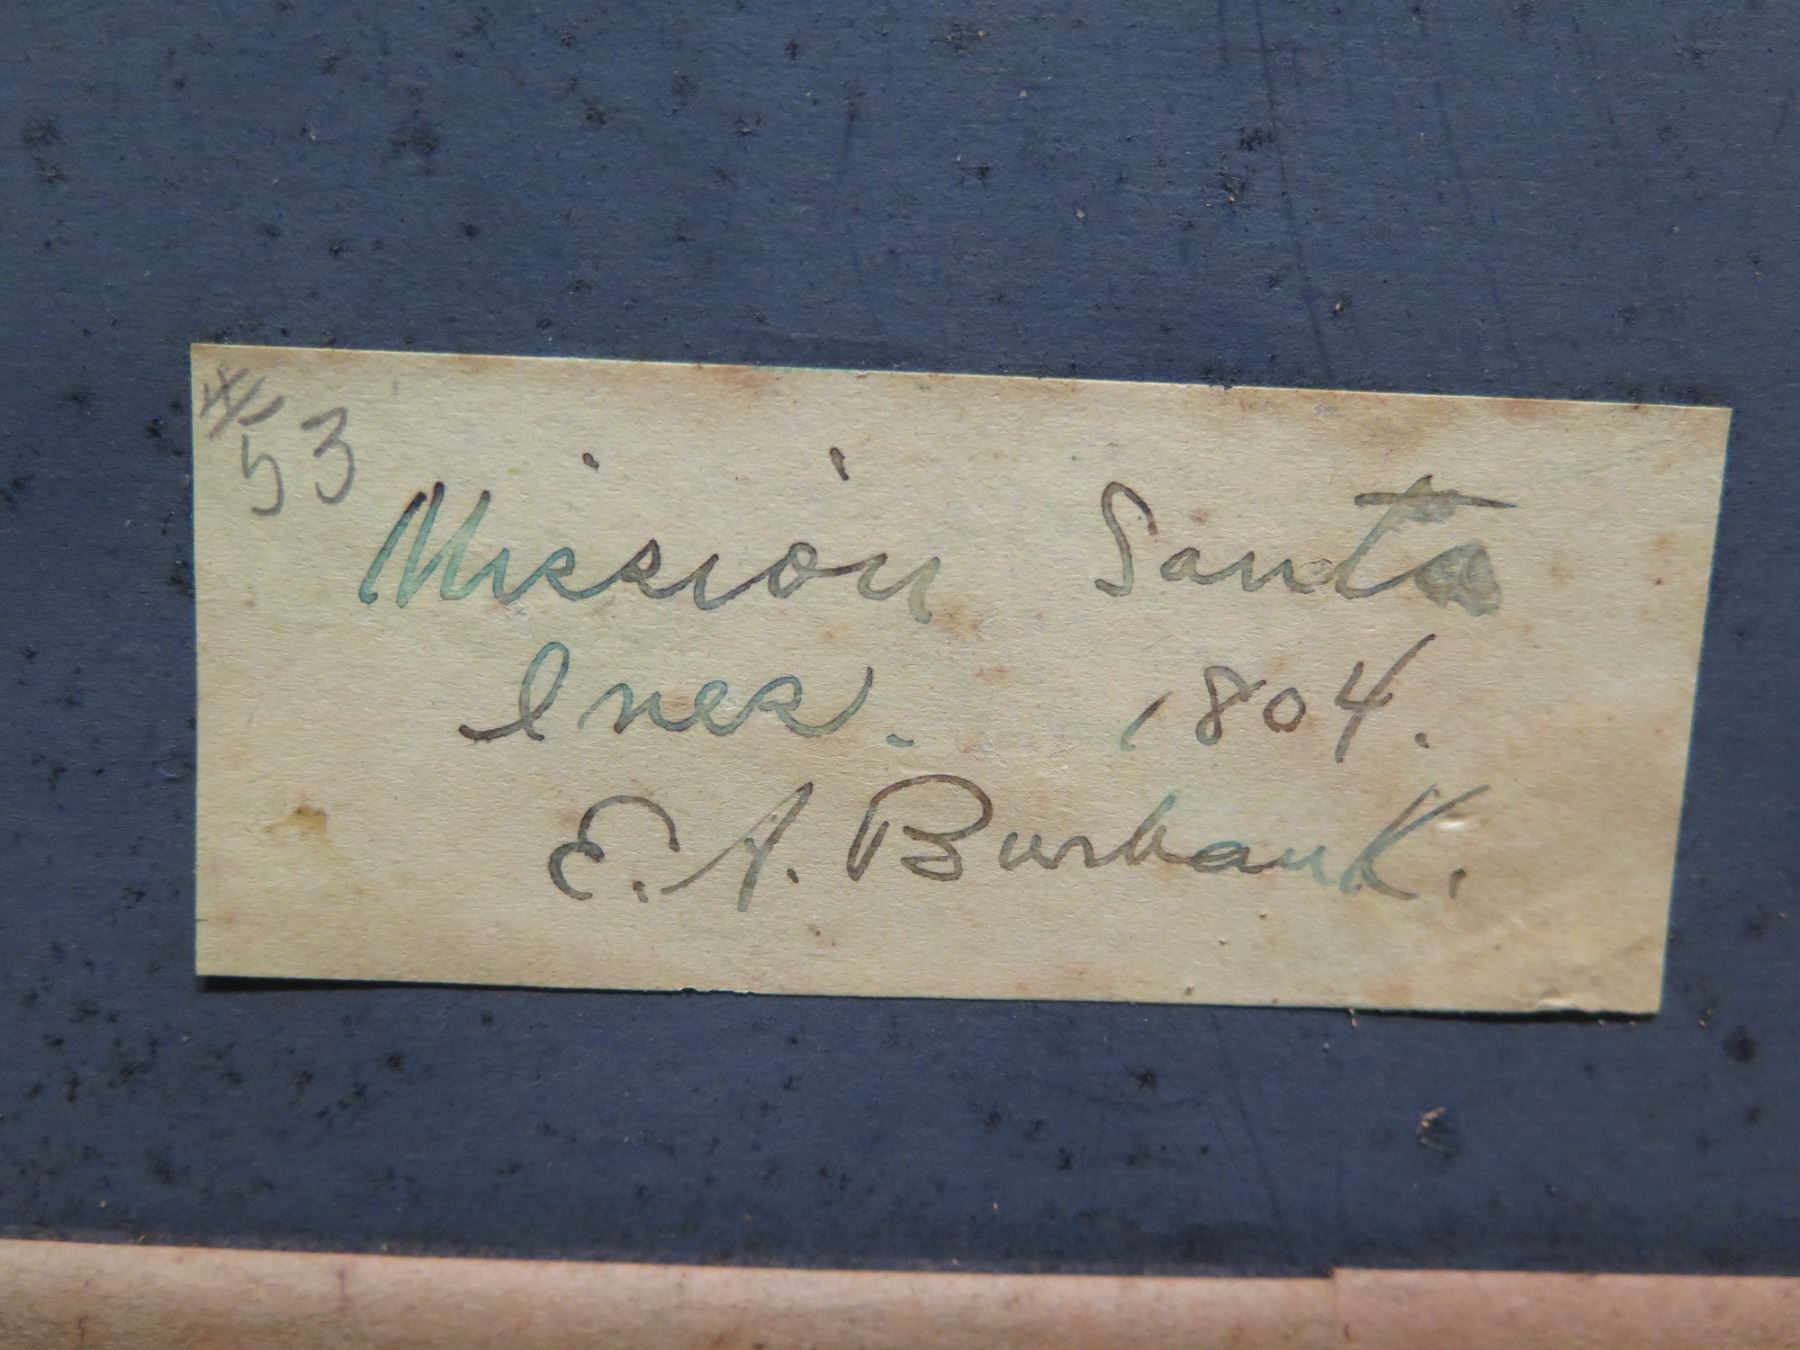 #53
Mission Santa
Ines. 1804.
E. A. Burbank.